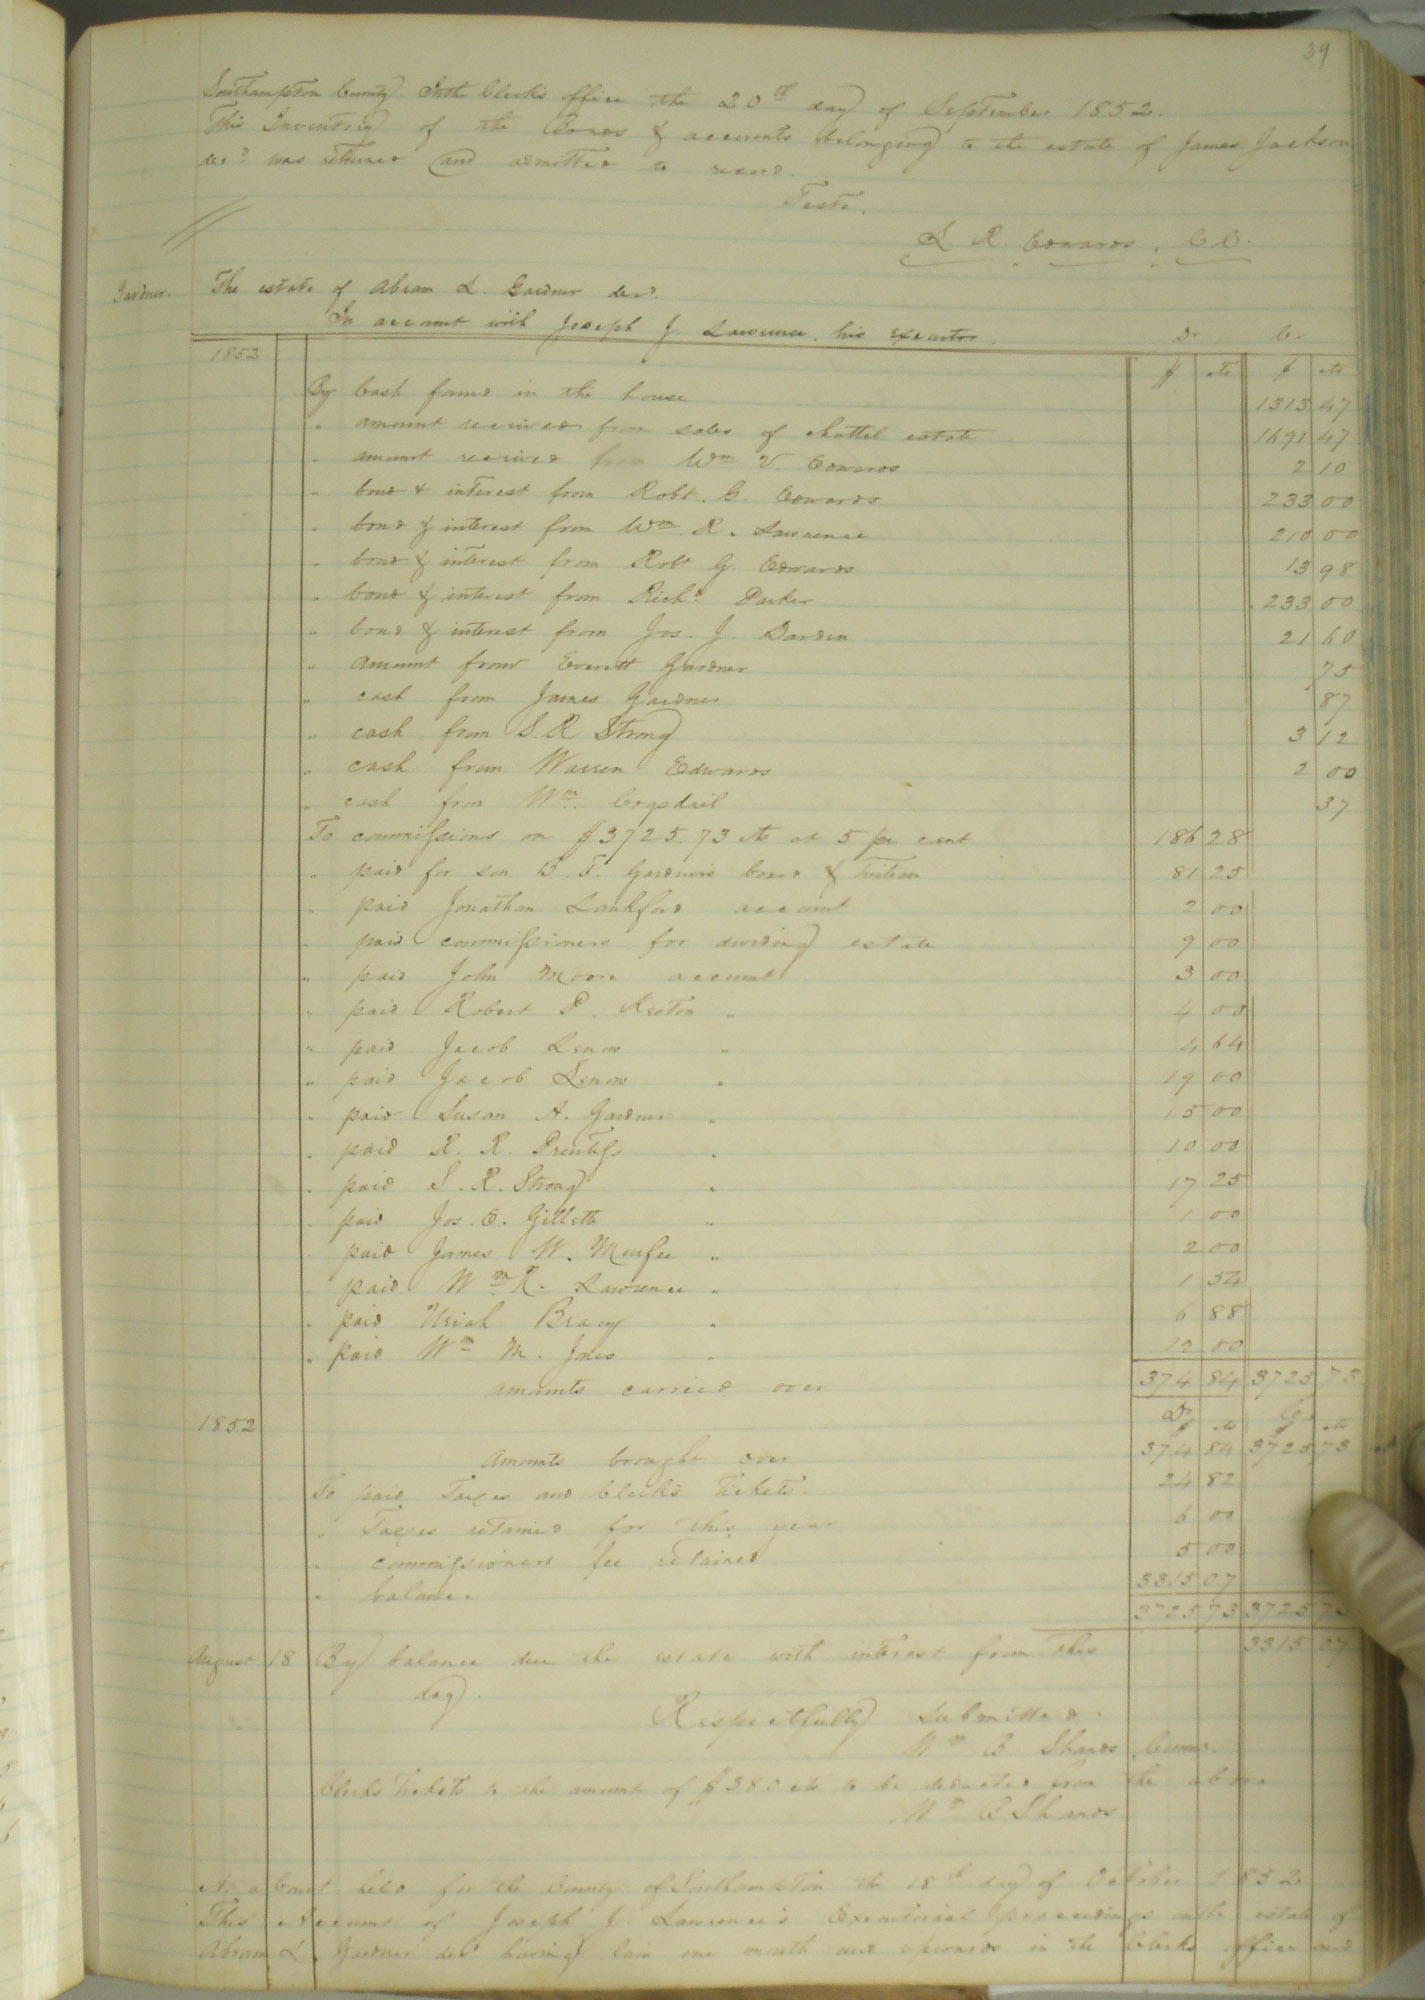 39
Southampton County In the Clerk's office the 20th day of September 1852.
This Inventory of the Bonds & accounts belonging to the estate of James Jackson
decd was returned and admitted to record.
Teste.
L R Edwards. C.C.
Gardner. The estate of Abram L. Gardner decd.
In account with Joseph J. Lawrence, his executor. Dr Cr
1852 $ cts $ cts
By Cash found in the house 1313 47
" amount received from sales of chattel estate 1691 47
" amount received from Wm V. Edwards 2 10
" bond & interest from Robt. G. Edwards 233 00
" bond & interest from Wm R. Lawrence 210 00
" bond & interest from Robt G. Edwards 13 98
" bond & interest from Richd Parker 233 00
" bond & interest from Jos. J. Darden 21 60
" amount from Everett Gardner 75
" cash from James Gardner 87
" cash from S. R Strong 3 12
" cash from Warren Edwards 2 00
" cash from Wm. 37
To commissions on $3725.73 cts at 5 per cent 186 28
" paid for son B. T. Gardner's board & tuition 81 25
" paid Jonathan Lankford account 2 00
" paid commissioners for dividing estate 9 00
" paid John Moore account 3 00
" paid Robert P. " 4 00
" paid Jacob Lenow " 4 64
" paid Jacob Lenow " 19 00
" paid Susan A. Gardner " 15 00
" paid R. R. Prentiss " 10 00
" paid S. R. Strong " 17 25
" paid Jos. E. Gillette " 1 00
" paid James W. Menfee " 2 00
" paid Wm R. Lawrence " 1 54
" paid Uriah Bracy " 6 88
" paid Wm M. Jones " 12 00
amounts carried over 374 84 3725 73
1852 Dr $ cts Cr cts
Amounts brought over 374 84 3725 73
To paid Taxes and Clerk's Tickets. 24 82
" Taxes retained for this year 6 00
" commissioners fee retained 5 00
" balance. 3315 07
3725 73 3725 73
August 18 By balance due the estate with interest from this 3315 07
day.
Respectfully submitted.
Wm B. Shands, Comr.
Clerks Tickets to the amount of $3 80 cts to be deducted from the above
Wm B Shands
At a Court held for the County of Southampton the 18th day of October 1852
This Account of Joseph J. Lawrence's Executorial proceedings on the estate of
Abram L. Gardner decd having lain one month and upwards in the Clerks office and